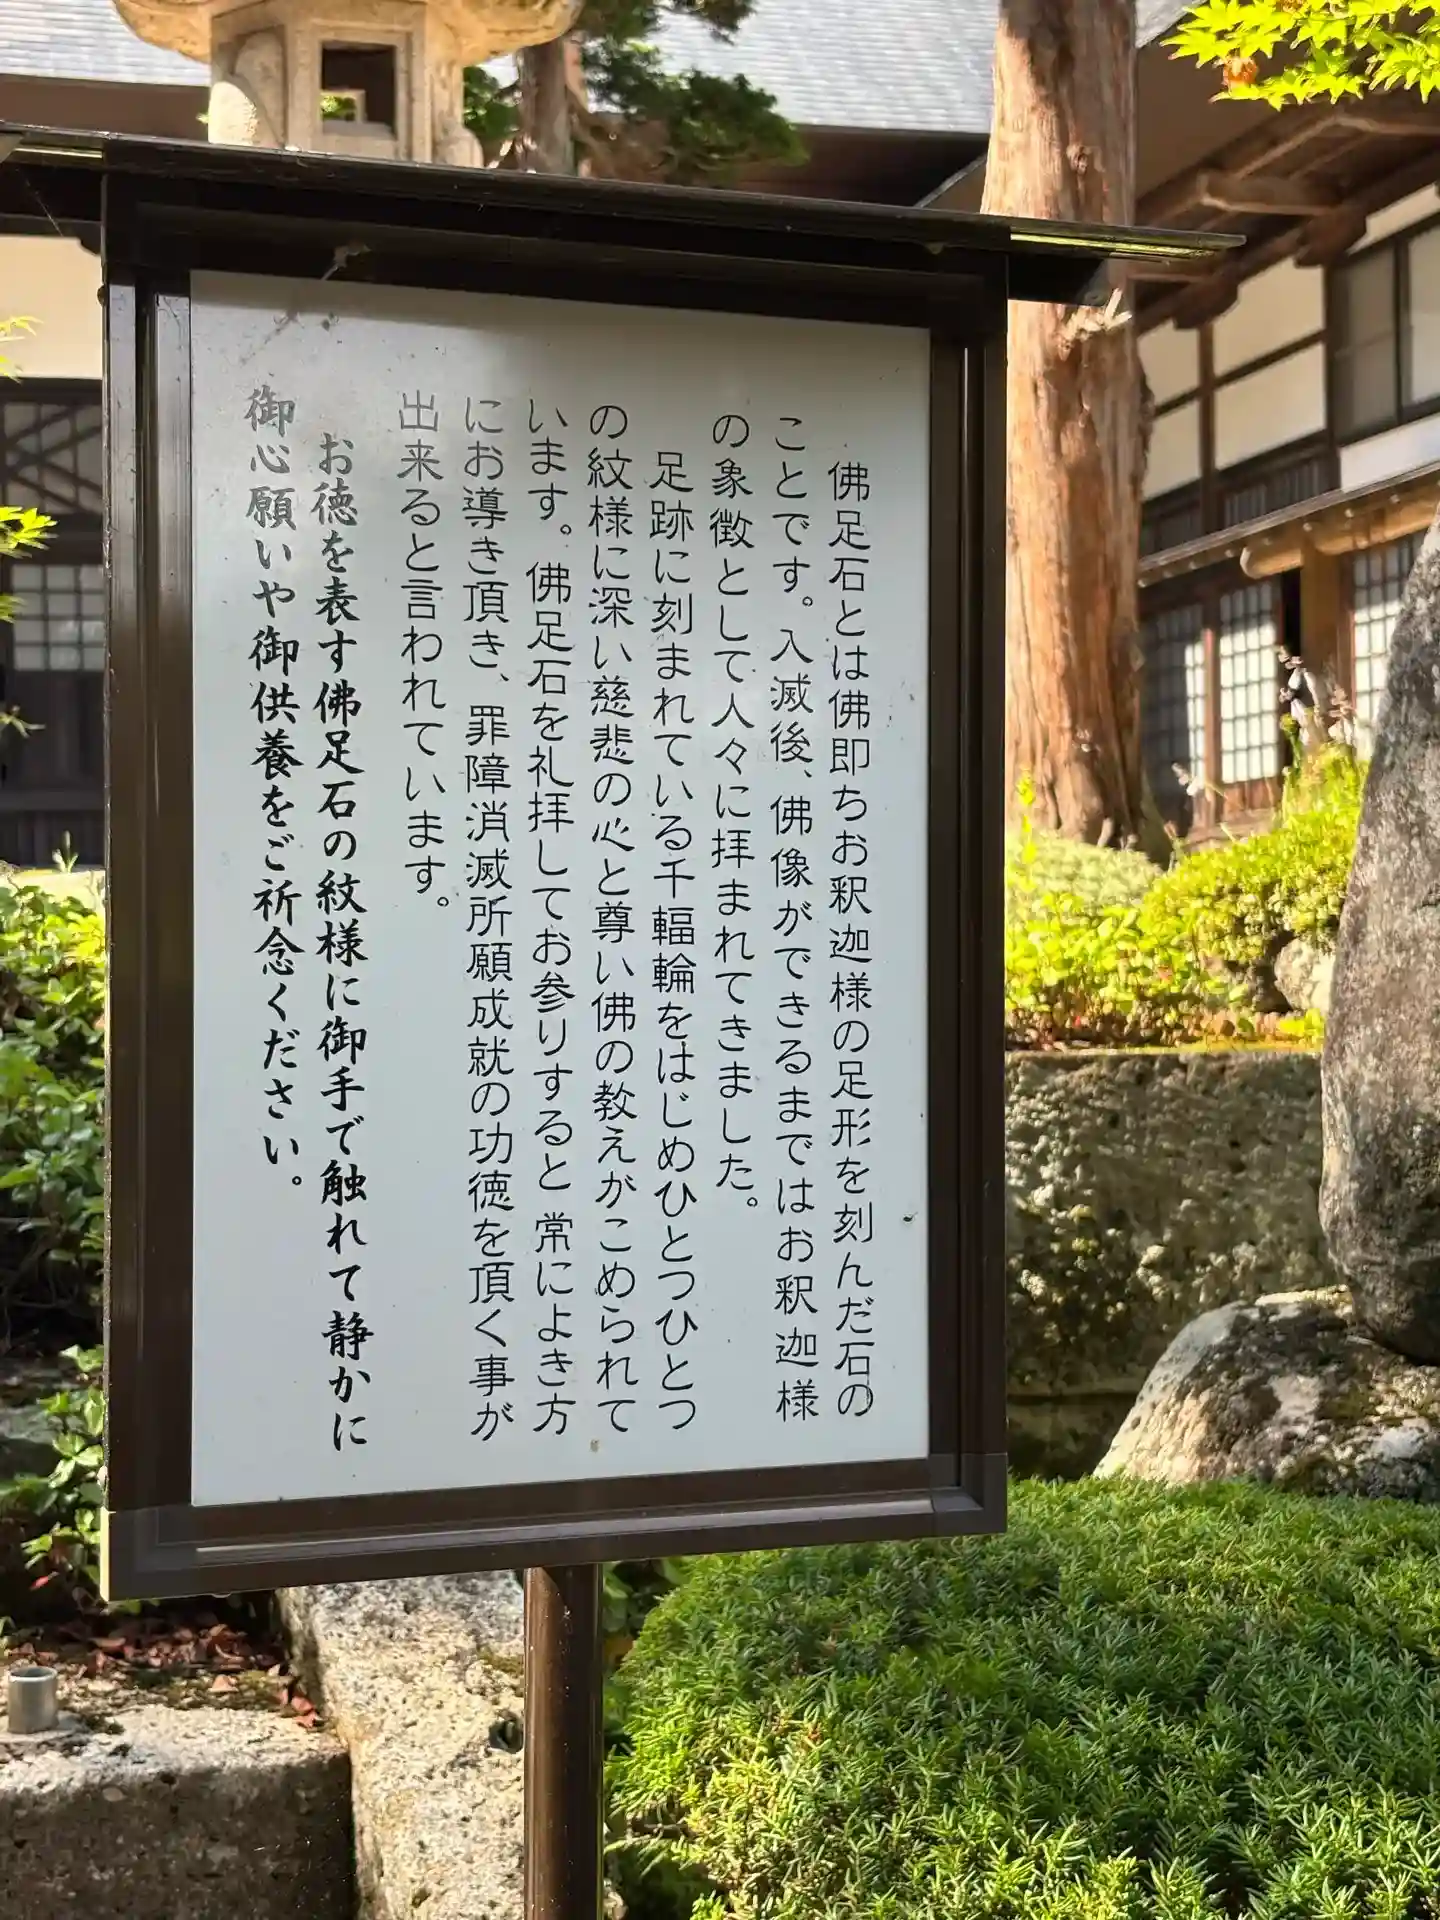 佛足石とは佛即ちお釈迦様の足形を刻んだ石の
ことです。入滅後、佛像ができるまではお釈迦様
の象徴として人々に拝まれてきました。
足跡に刻まれている千輻輪をはじめひとつひとつ
の紋様に深い慈悲の心と尊い佛の教えがこめられて
います。佛足石を礼拝してお参りすると常によき方
にお導き頂き、罪障消滅所願成就の功徳を頂く事が
出来ると言われています。
お徳を表す佛足石の紋様に御手で触れて静かに
御心願いや御供養をご祈念ください。